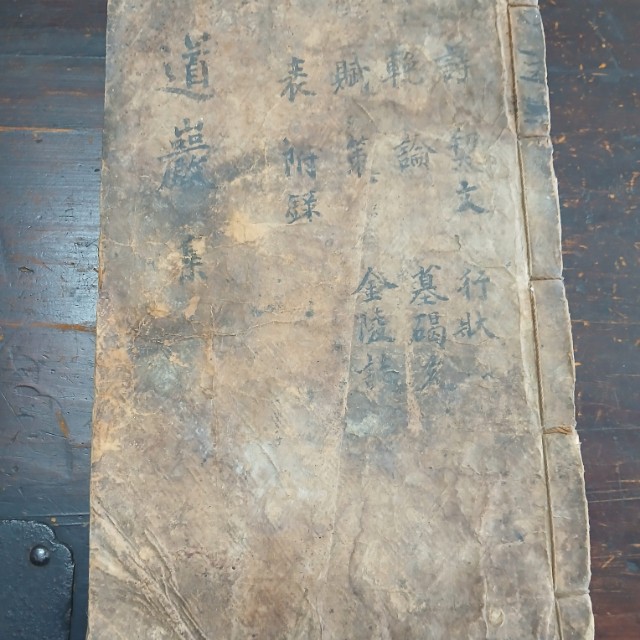 詩 文 行狀
輓 論 墓碣
賦 策 金陵
表 附錄
道巖集